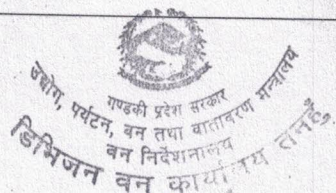 गण्डकी प्रदेश सरकार
उद्योग, पर्यटन, वन तथा वातावरण मन्त्रालय
वन निर्देशनालय
डिभिजन वन कार्यालय तनहुँ,